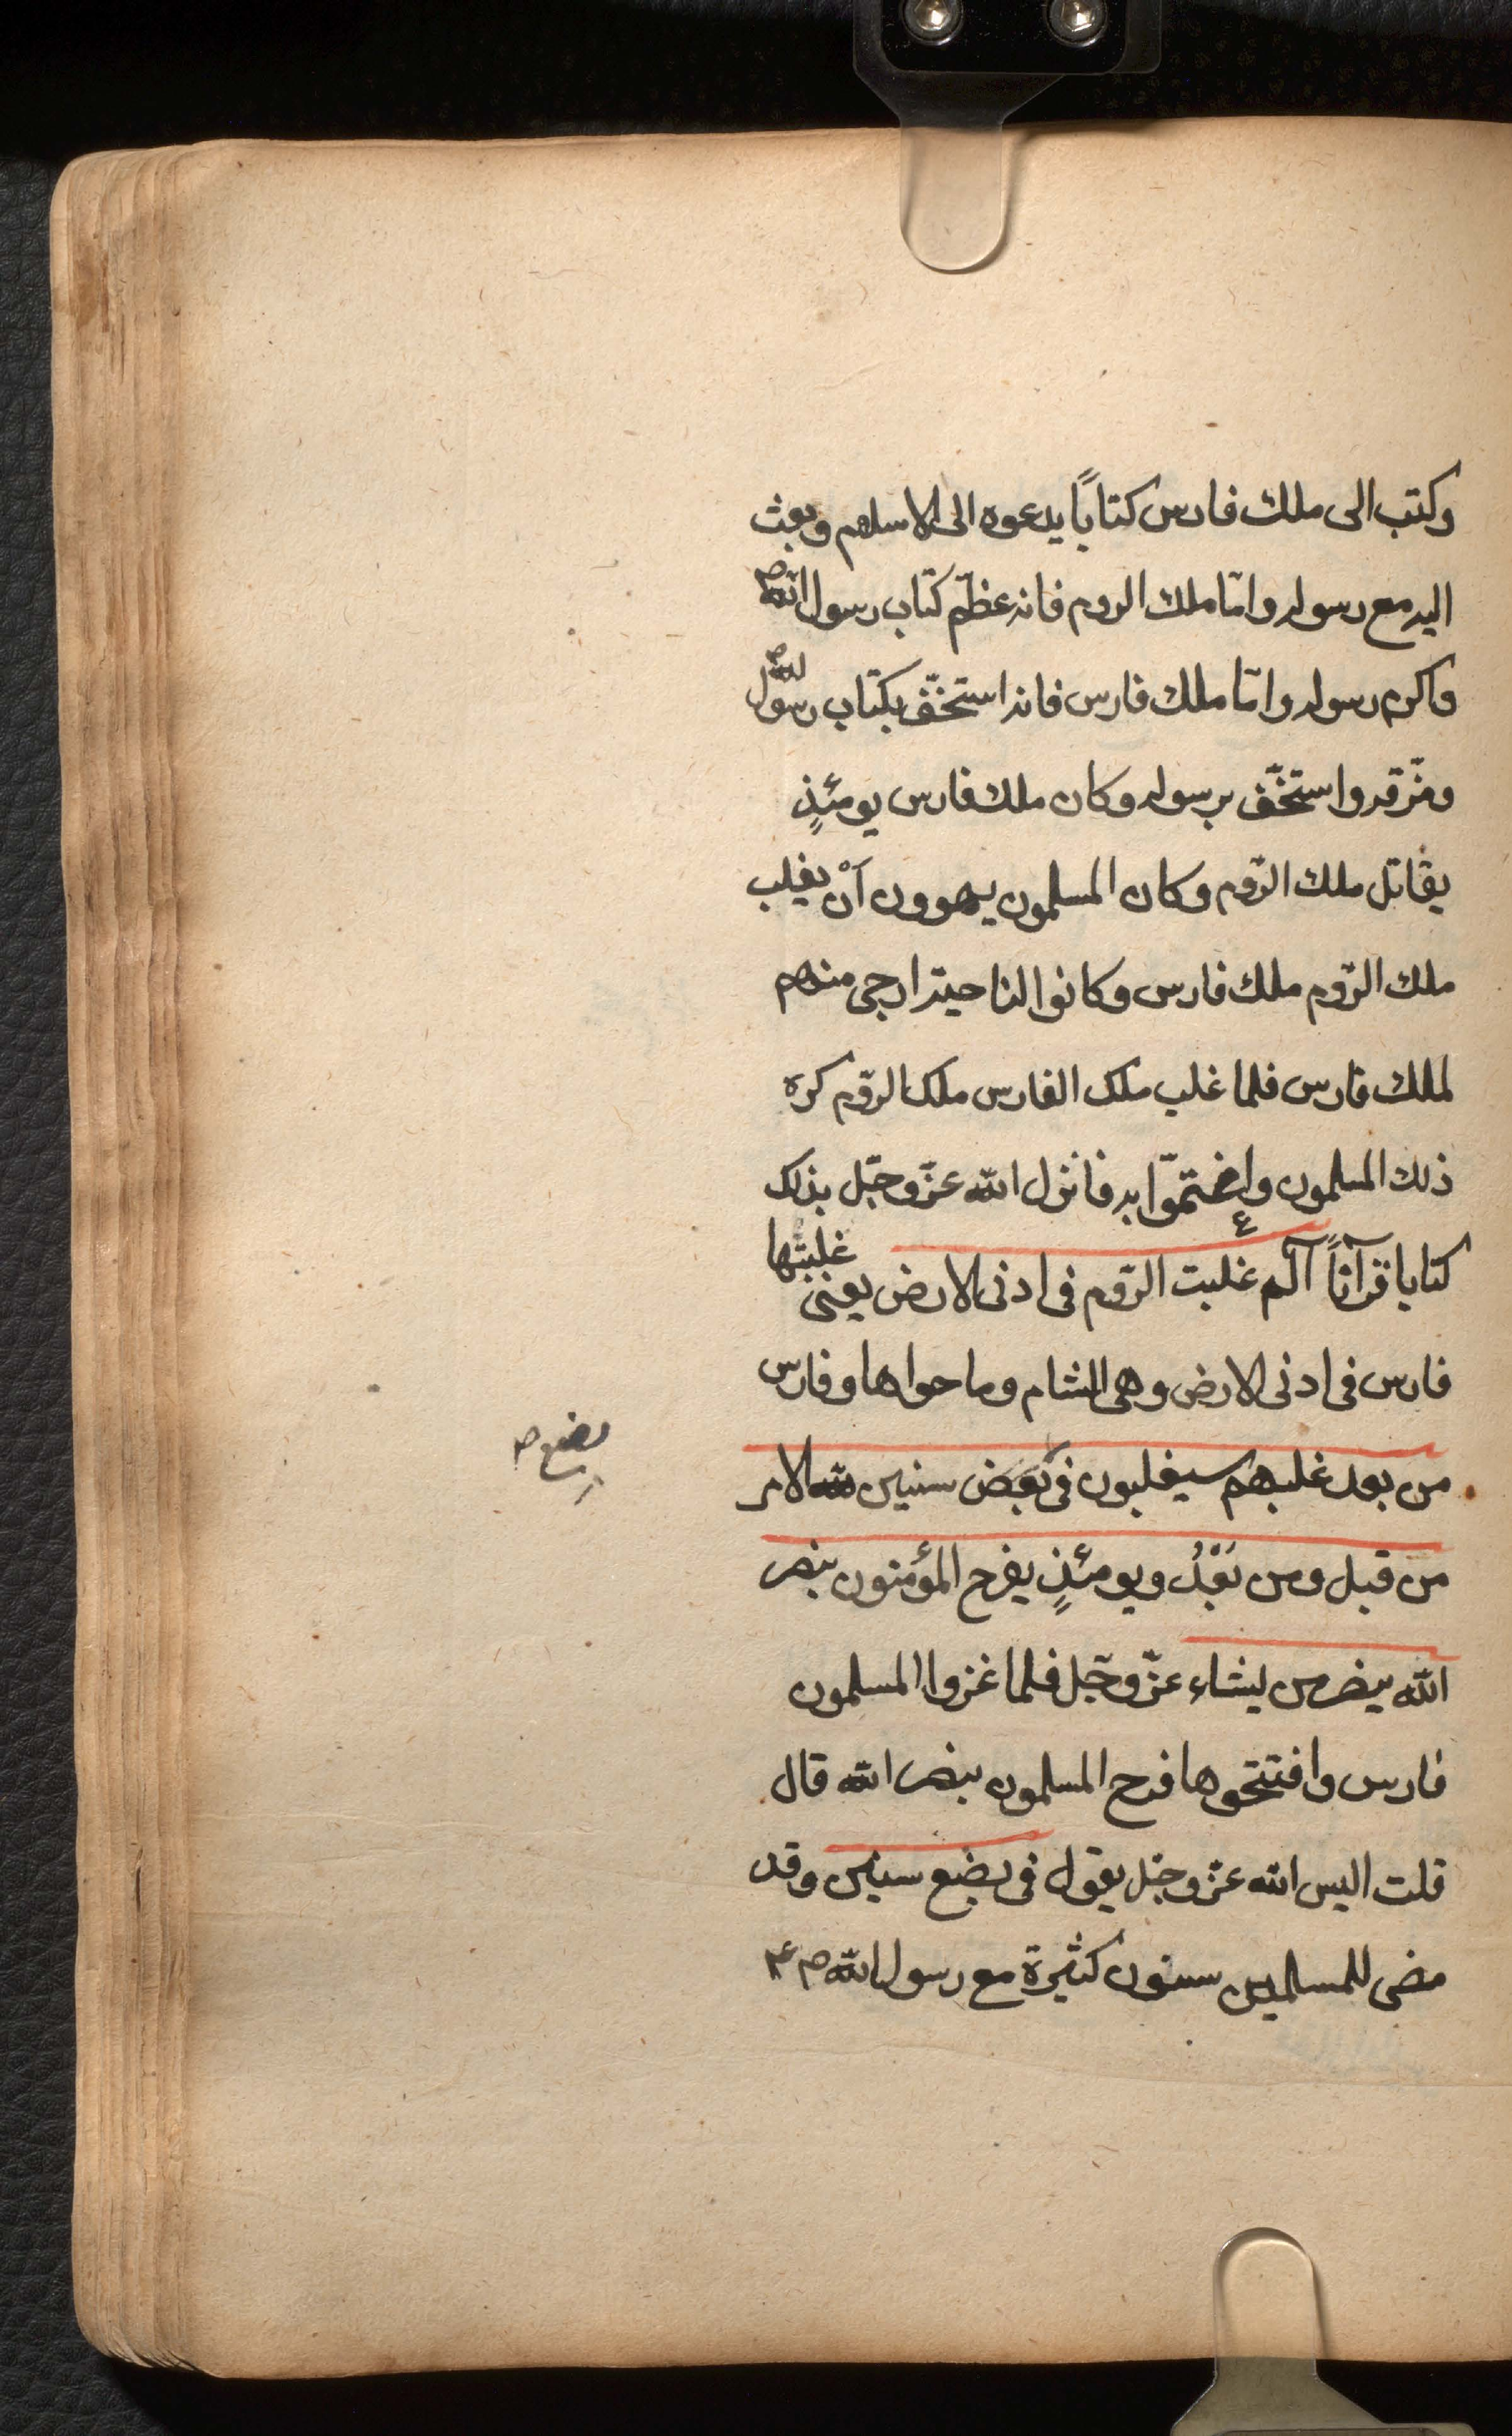 وكتب الى ملك فارس كتاباً يدعوه الى الاسلام وبعث
اليه مع رسوله وامّا ملك الروم فانه عظّم كتاب رسول الله ص
واكرم رسوله وامّا ملك فارس فانه استخفّ بكتاب رسول الله ص
ومزّقه واستخفّ برسوله وكان ملك فارس يومئذٍ
يقاتل ملك الرّوم وكان المسلمون يهوون أنْ يغلب
ملك الرّوم ملك فارس وكانوا لناحيته ارجى منهم
لملك فارس فلما غلب ملك الفارس ملك الرّوم كره
ذلك المسلمون واغتمّوا به فانزل الله عزّ وجّل بذلك
كتابا قرآناً آلم غلبت الرّوم فى ادنى الارض يعنى غلبتها
فارس فى ادنى الارض وهى الشام وما حواها وفارس
من بعد غلبهم سيغلبون فى بعض سنين لله الامر
بضع ص
من قبل ومن بَعْدُ ويومئذٍ يفرح المؤمنون بنصر
الله ينصر من يشاء عزّ وجّل فلما غزوا المسلمون
فارس وافتتحوها فرح المسلمون بنصر الله قال
قلت اليس الله عزّ وجّل يقول فى بضع سنين وقد
مضى للمسلمين سنون كثيرة مع رسول الله ص ع